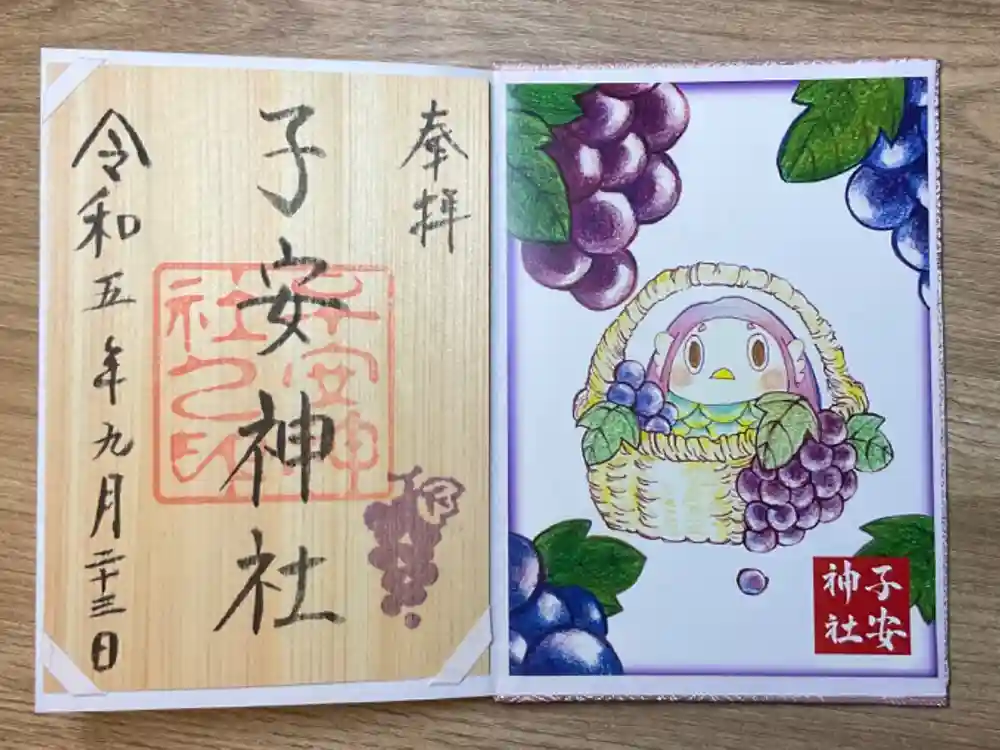 奉拝
子安神社
令和五年九月二十三日
子安神
社之印
子安
神社